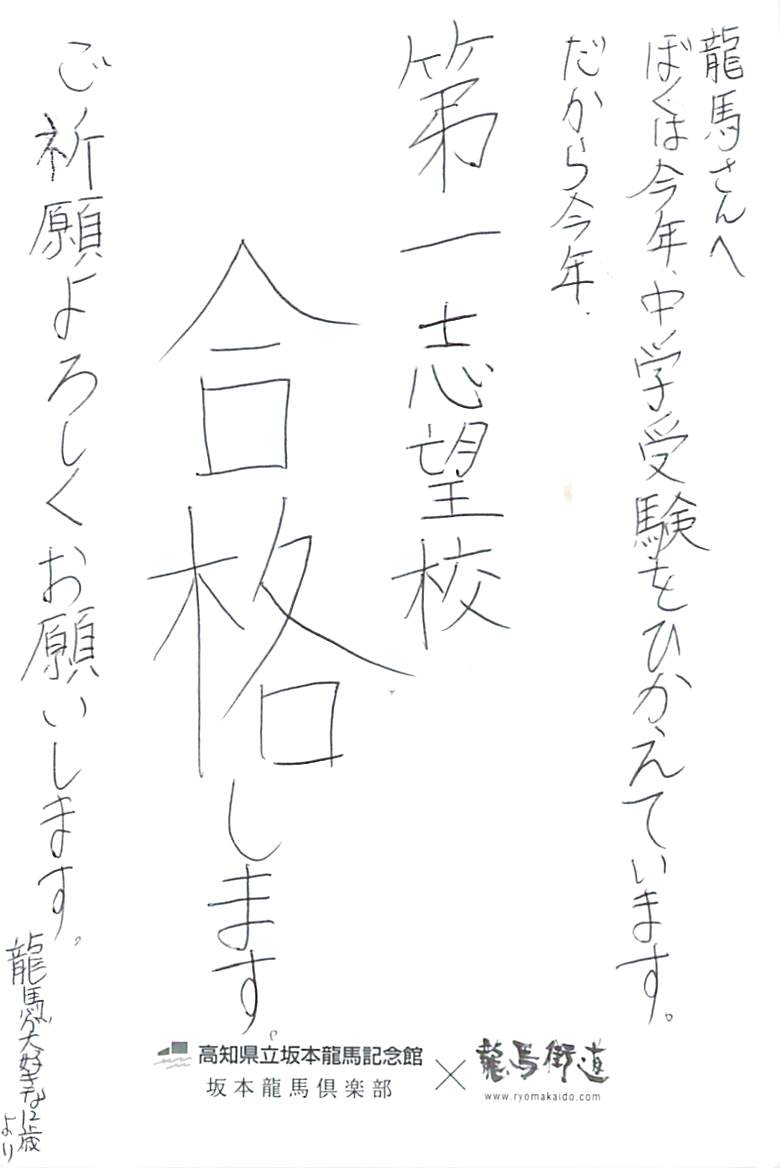 龍馬さんへ
ぼくは今年、中学受験をひかえています。
だから今年、
第一志望校
合格します。
ご祈願よろしくお願いします。
龍馬が大好きな12歳
より
高知県立坂本龍馬記念館
坂本龍馬倶楽部
×
龍馬街道
www.ryomakaido.com